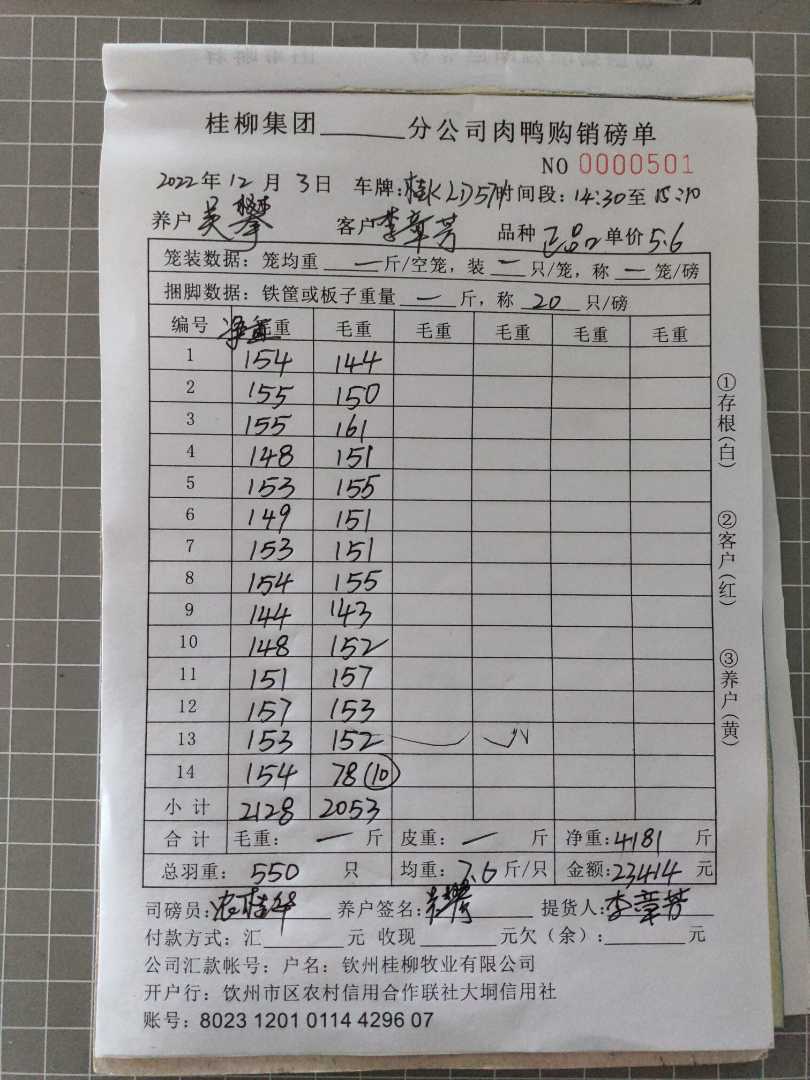 桂柳集团______分公司肉鸭购销磅单
NO 0000501
2022年12月3日 车牌:桂KLD579 时间段:14:30至15:10
养户 吴攀 客户 李章芳 品种 正品 单价 5.6
笼装数据: 笼均重 一 斤/空笼, 装 一 只/笼, 称 一 笼/磅
捆脚数据: 铁筐或板子重量 一 斤, 称 20 只/磅
编号 净重 毛重 毛重 毛重 毛重 毛重
1 154 144
2 155 150
3 155 161
4 148 151
5 153 155
6 149 151
7 153 151
8 154 155
9 144 143
10 148 152
11 151 157
12 157 153
13 153 152
14 154 78(10)
小计 2128 2053
合计 毛重: 一 斤 皮重: 一 斤 净重:4181 斤
总羽重: 550 只 均重: 7.6 斤/只 金额:23414 元
司磅员:农桂华 养户签名:吴攀 提货人:李章芳
付款方式: 汇______元 收现______元欠(余):______元
公司汇款帐号: 户名: 钦州桂柳牧业有限公司
开户行: 钦州市区农村信用合作联社大垌信用社
账号: 8023 1201 0114 4296 07
①存根(白)
②客户(红)
③养户(黄)